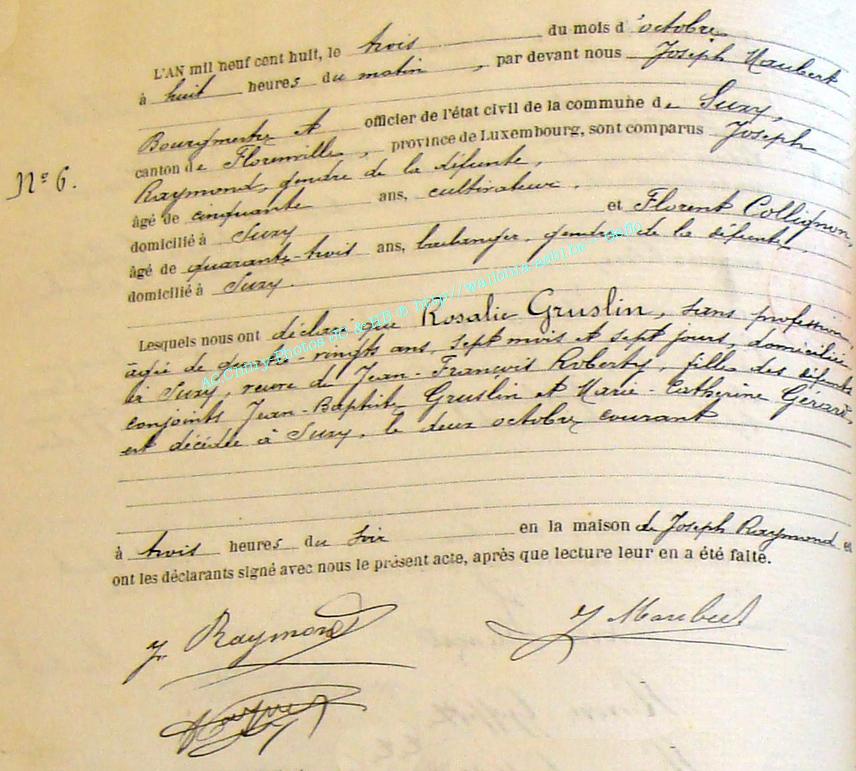 L'AN mil neuf cent huit, le trois du mois d'octobre
à huit heures du matin, par devant nous Joseph Maubert
Bourgmestre et officier de l'état civil de la commune de Suxy,
canton de Florenville, province de Luxembourg, sont comparus Joseph
Nº 6.
Raymond, gendre de la défunte,
âgé de cinquante ans, cultivateur,
domicilié à Suxy et Florent Collignon,
âgé de quarante-trois ans, boulanger, gendre de la défunte,
domicilié à Suxy.
Lesquels nous ont déclaré que Rosalie Gruslin, sans profession,
âgée de quatre-vingts ans, sept mois et sept jours, domiciliée
à Suxy, veuve de Jean-François Roberty, fille des défunts
conjoints Jean-Baptiste Gruslin et Marie-Catherine Gérard,
est décédée à Suxy, le deux octobre courant
à trois heures du soir en la maison de Joseph Raymond et
ont les déclarants signé avec nous le présent acte, après que lecture leur en a été faite.
J. Raymond J. Maubert